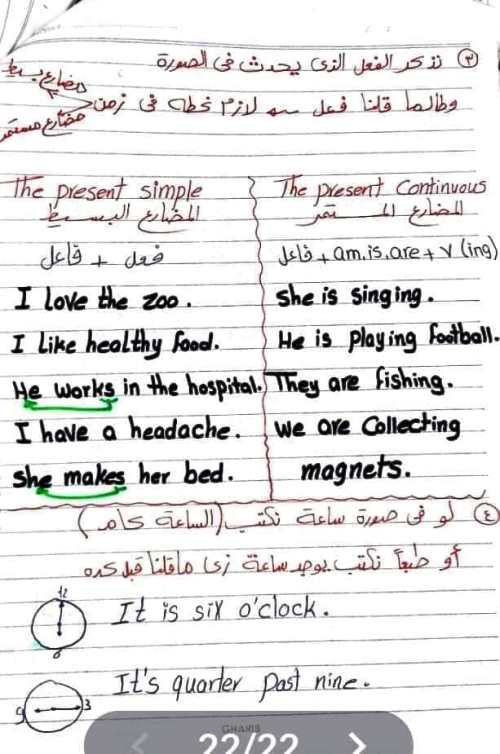 ٣ نذكر الفعل الذى يحدث فى الصورة
مضارع بسيط
وطالما قلنا فعل يبقى لازم نحطه فى زمن
مضارع مستمر
The present simple
المضارع البسيط
فاعل + فعل
I love the zoo.
I like healthy food.
He works in the hospital.
I have a headache.
She makes her bed.
The present Continuous
المضارع المستمر
فاعل + am.is.are + v (ing)
She is singing.
He is playing football.
They are fishing.
we are Collecting
magnets.
٤ لو فى صورة ساعة نكتب (الساعة كام)
أو طبعاً نكتب يوجد ساعة زى ماقلنا قبل كده
12
6
It is six o'clock.
9 3
It's quarter past nine.
GHARIB
22/22